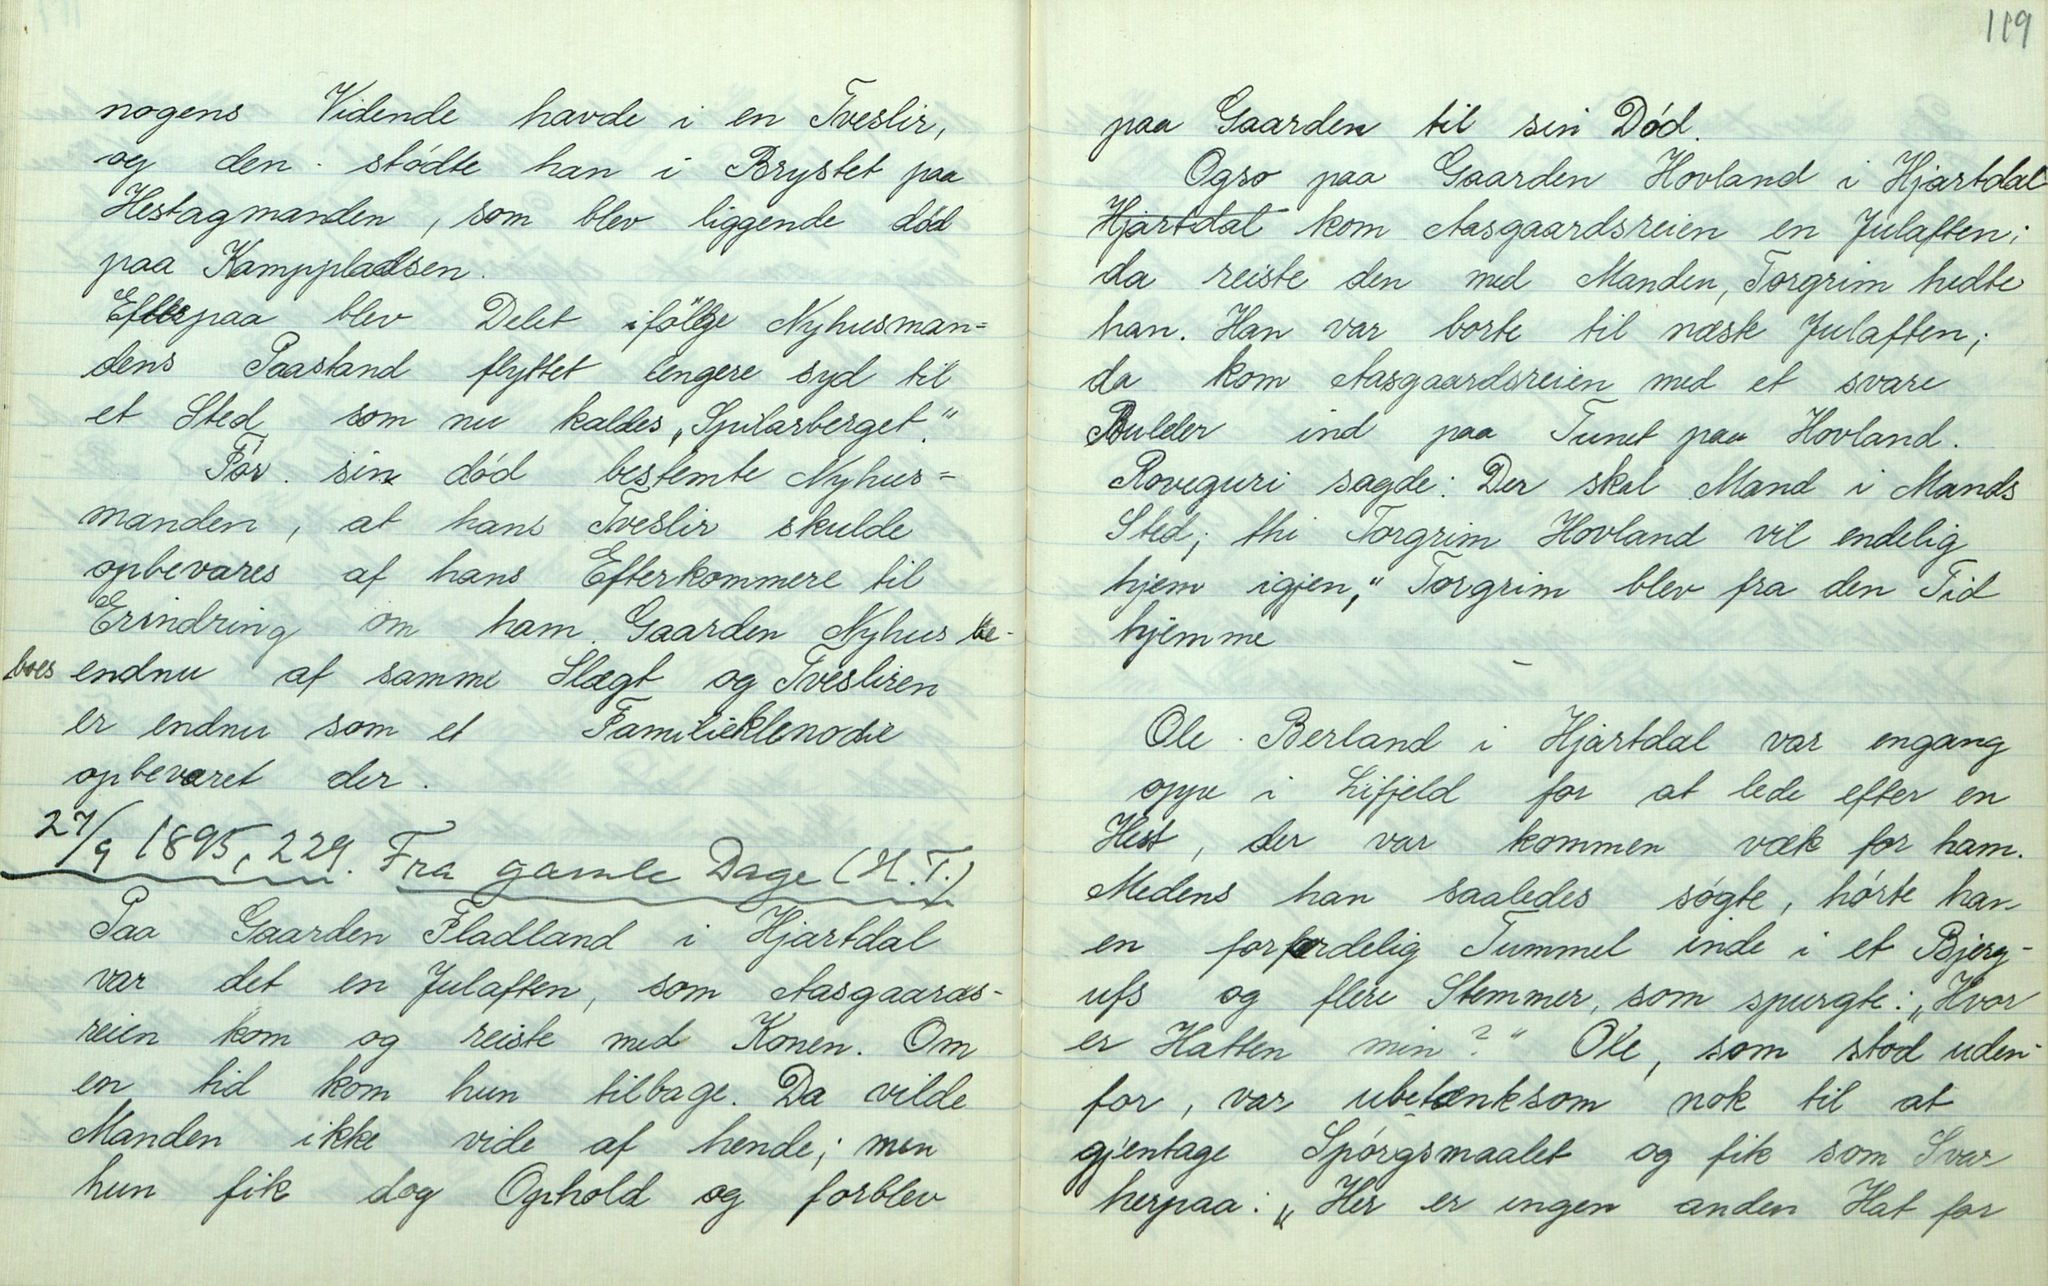 nogens Vidende havde i en Tveslir,
og den stødte han i Brystet paa
Hestagmanden, som blev liggende død
paa Kamppladsen.
Efterpaa blev Delet ifölge Nyhusman=
dens Paastand flyttet lengere syd til
et Sted som nu kaldes „Spilarberget“.
Før sin død bestemte Nyhus=
manden, at hans Tveslir skulde
opbevares af hans Efterkommere til
Erindring om ham. Gaarden Nyhus be-
boes endnu af samme Slægt og Tvesliren
er endnu som et Familieklenodie
opbevaret der.
27/9 1895, 229. Fra gamle Dage (H.T.)
Paa Gaarden Fladland i Hjartdal
var det en Julaften, som Aasgaards-
reien kom og reiste med Konen. Om
en tid kom hun tilbage. Da vilde
Manden ikke vide af hende; men
hun fik dog Ophold og forblev
119
paa Gaarden til sin Død.
Ogso paa Gaarden Hovland i Hjartdal
Hjartdal kom Aasgaardsreien en Julaften;
da reiste den med Manden, Torgrim hedte
han. Han var borte til næste Julaften;
da kom Aasgaardsreien med et svare
Bulder ind paa Tunet paa Hovland.
Roveguri sagde: Der skal Mand i Mands
Sted; thi Torgrim Hovland vil endelig
hjem igjen,“ Torgrim blev fra den Tid
hjemme
Ole Berland i Hjartdal var engang
oppe i Lifjeld for at lede efter en
Hest, der var kommen væk for ham.
Medens han saaledes søgte, hørte han
en forfærdelig Tummel inde i et Bjerg-
ufs og flere Stemmer, som spurgte: „Hvor
er Hatten min?“ Ole, som stod uden-
for, var ubetænksom nok til at
gjentage Spørgsmaalet og fik som Svar
herpaa: „Her er ingen anden Hat for